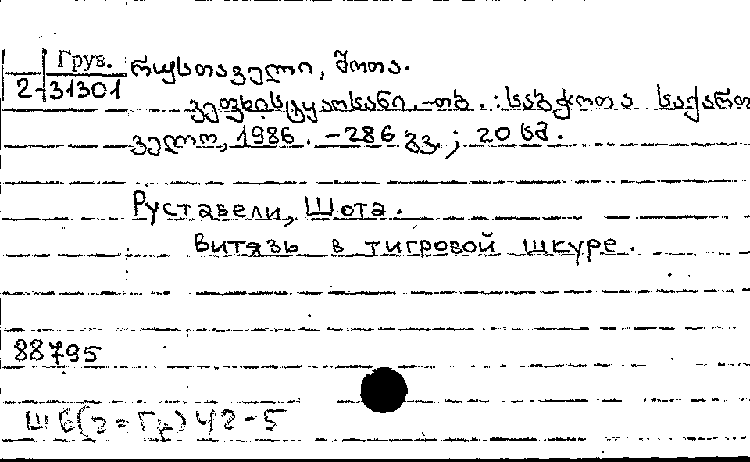 Груз.
2-31301
რუსთაველი, შოთა.
ვეფხისტყაოსანი. -თბ. : საბჭოთა საქართ
ველო, 1986. -286 გვ. ; 20 სმ.
Руставели, Шота.
Витязь в тигровой шкуре.
88795
Ш6(2=Гр)42-5